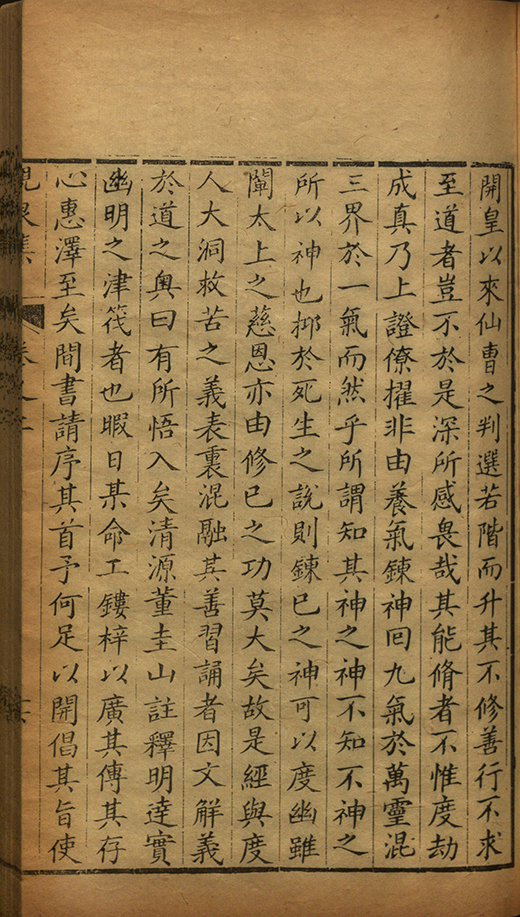 開皇以來仙曹之判選若階而升其不修善行不求
至道者豈不於是深所感畏哉其能脩者不惟度劫
成真乃上證僚擢非由養氣鍊神回九氣於萬靈混
三界於一氣而然乎所謂知其神之神不知不神之
所以神也抑於死生之說則鍊已之神可以度幽雖
闡太上之慈恩亦由修已之功莫大矣故是經與度
人大洞救苦之義表裏混融其善習誦者因文解義
於道之奧曰有所悟入矣清源董圭山註釋明逹實
幽明之津筏者也暇日某命工鏤梓以廣其傳其存
心惠澤至矣間書請序其首予何足以開倡其旨使
峴泉集 卷之二